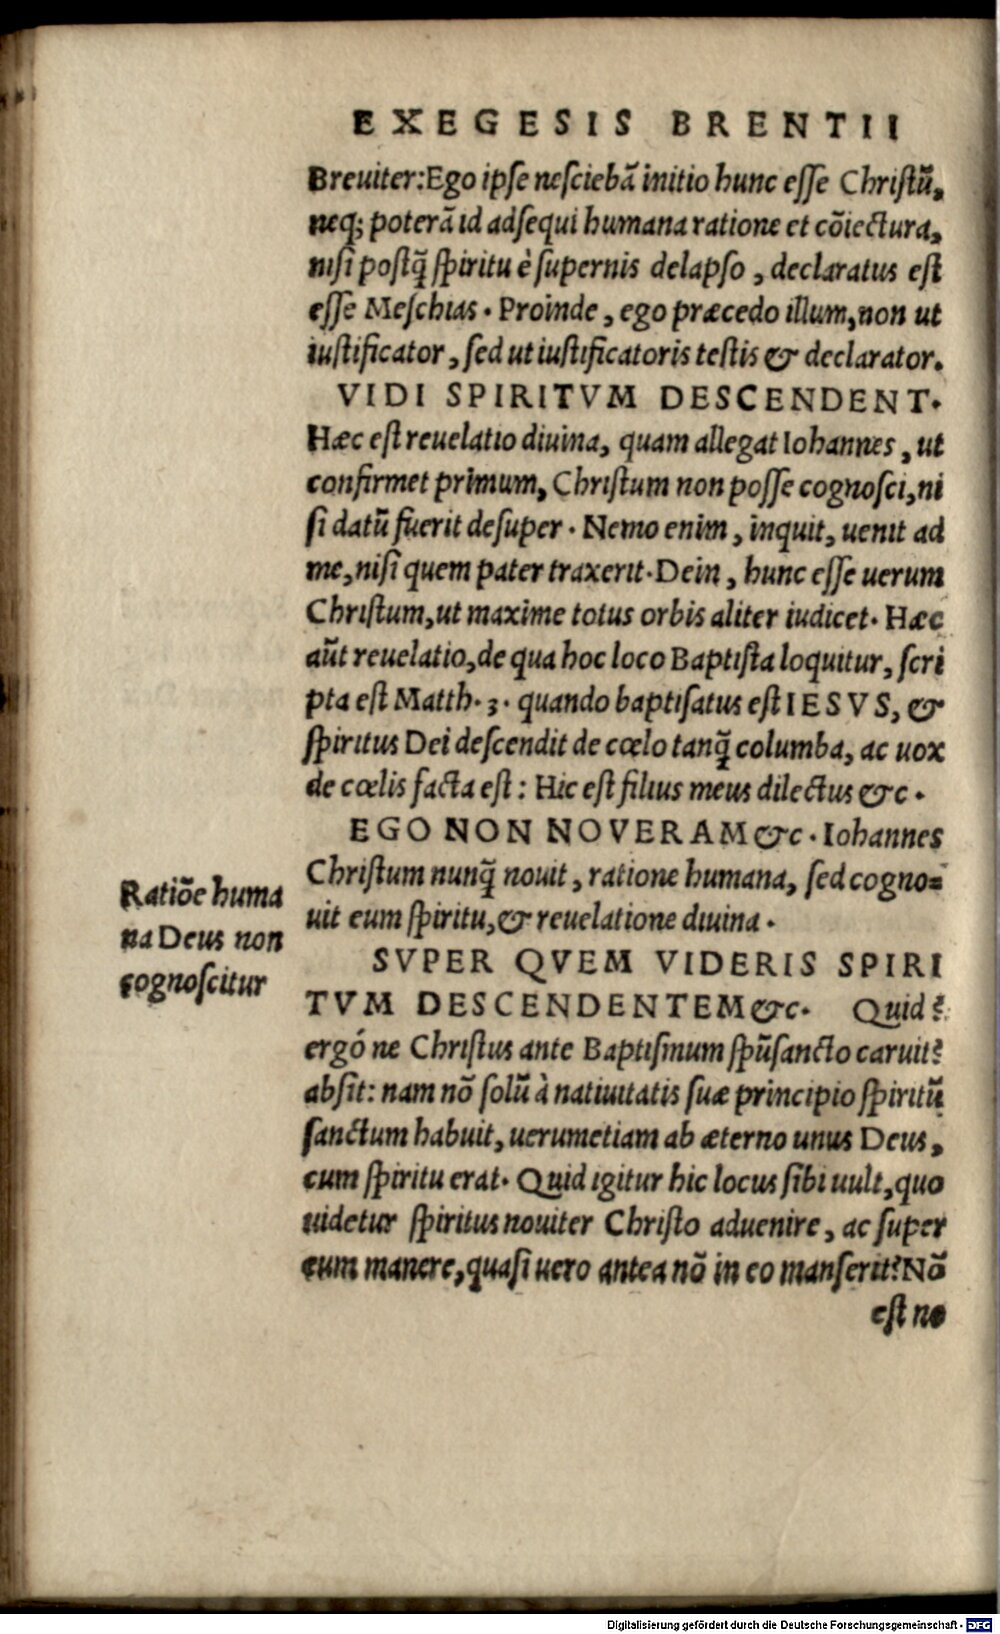 EXEGESIS BRENTII
Breuiter: Ego ipse nesciebā initio hunc esse Christū,
neq; poterā id adsequi humana ratione et cōiectura,
nisi postq̄ spiritu è supernis delapso, declaratus est
esse Meschias. Proinde, ego præcedo illum, non ut
iustificator, sed ut iustificatoris testis & declarator.
VIDI SPIRITVM DESCENDENT.
Hæc est reuelatio diuina, quam allegat Iohannes, ut
confirmet primum, Christum non posse cognosci, ni
si datū fuerit desuper. Nemo enim, inquit, uenit ad
me, nisi quem pater traxerit. Dein, hunc esse uerum
Christum, ut maxime totus orbis aliter iudicet. Hæc
aūt reuelatio, de qua hoc loco Baptista loquitur, scri
pta est Matth. 3. quando baptisatus est IESVS, &
spiritus Dei descendit de cœlo tanq̄ columba, ac uox
de cœlis facta est: Hic est filius meus dilectus &c.
EGO NON NOVERAM &c. Iohannes
Christum nunq̄ nouit, ratione humana, sed cogno=
uit eum spiritu, & reuelatione diuina.
Ratiōe huma
na Deus non
cognoscitur
SVPER QVEM VIDERIS SPIRI
TVM DESCENDENTEM &c. Quid?
ergó ne Christus ante Baptismum spūsancto caruit?
absit: nam nō solū à natiuitatis suæ principio spiritū
sanctum habuit, uerumetiam ab æterno unus Deus,
cum spiritu erat. Quid igitur hic locus sibi uult, quo
uidetur spiritus nouiter Christo aduenire, ac super
eum manere, quasi uero antea nō in eo manserit? Nō
est no
Digitalisierung gefördert durch die Deutsche Forschungsgemeinschaft - DFG